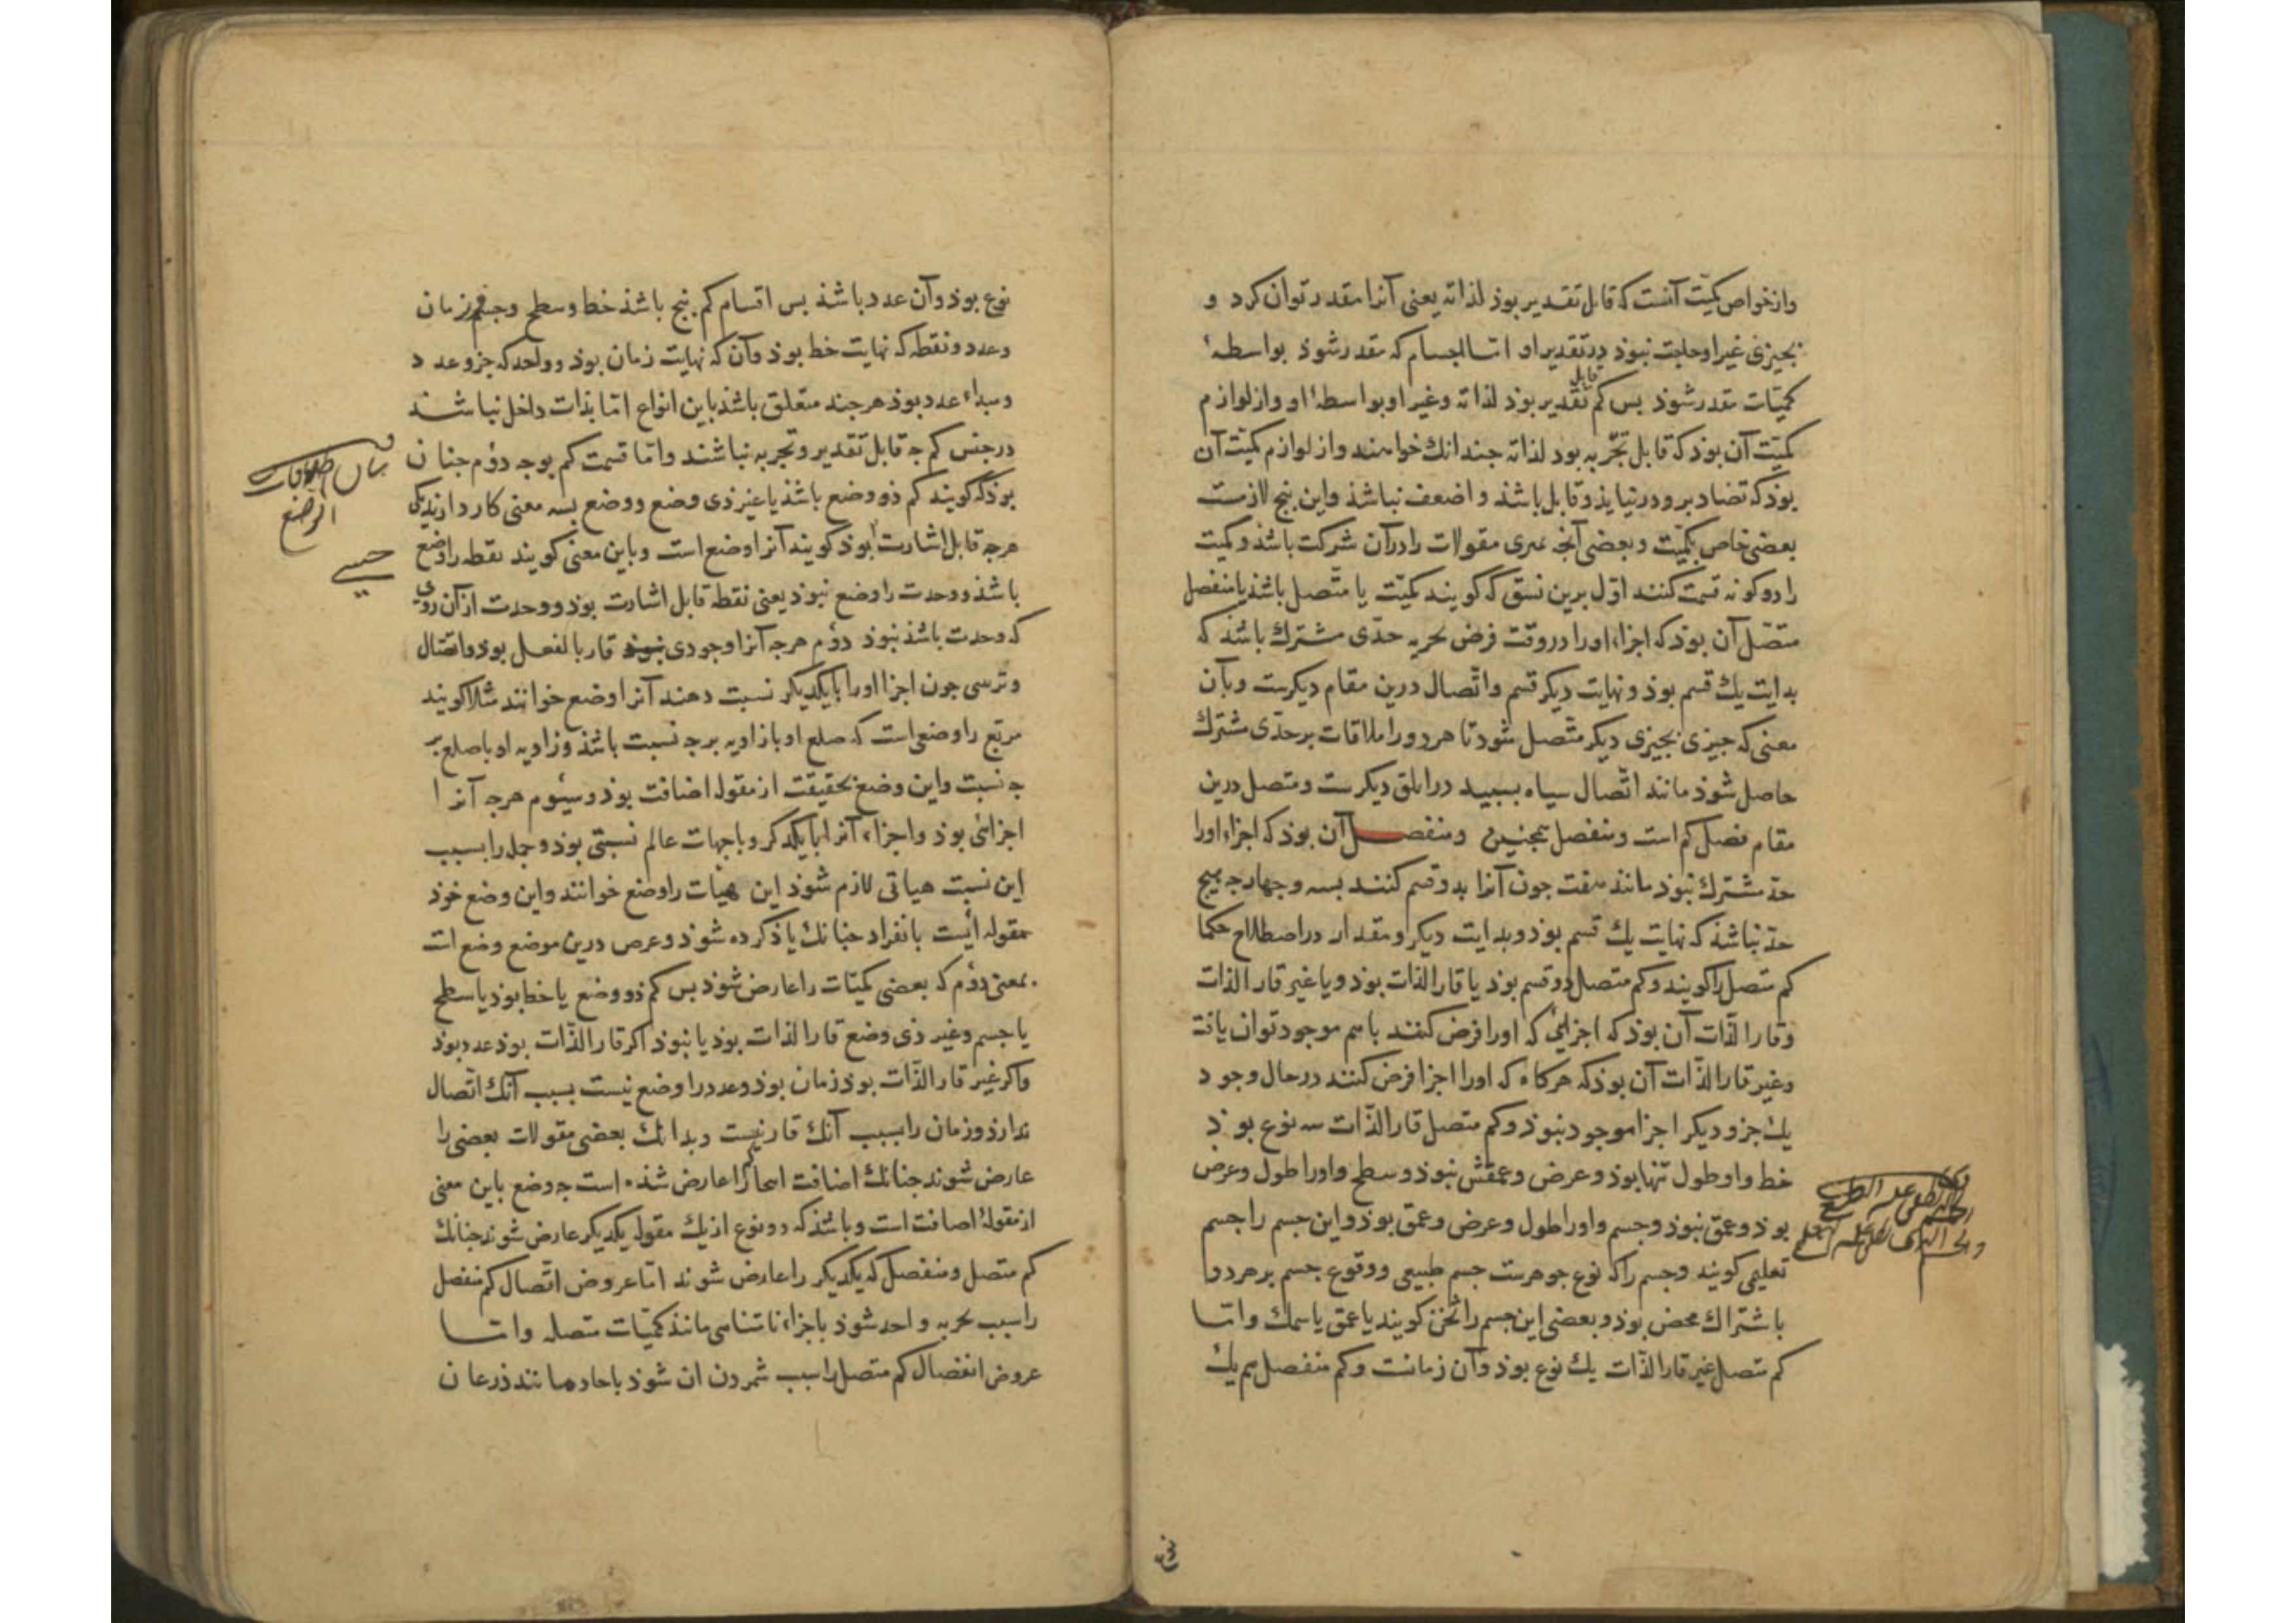 وازخواص كمّيت آنست كه قابل تقدير بوذ لذاته يعنى آنرا مقدر توان كرد و
بجيزى غيراو حاجت نبوذ در تقدير او امّا اجسام كه مقدر شوذ بواسطهٔ
كميّات مقدر شوذ بس كم قابل تقدير بوذ لذاته وغير او بواسطهٔ او وازلوازم
كميّت آن بوذ كه قابل تجزيه بود لذاته جندانك خواهند واز لوازم كميّت آن
بوذ كه تضاد برو درنيايذ وقابل باشذ و اضعف نباشذ واين بنج لازمست
بعضى خاص بكميّت وبعضى آنجه ديكرى مقولات را درآن شركت باشذ وكميت
را دوكونه قسمت كنند اوّل برين نسق كه كويند كميّت يا متّصل باشذ يا منفصل
متصّل آن بوذ كه اجزاء اورا دروقت فرض تجزيه حدّى مشترك باشذ كه
بدايت يك قسم بوذ ونهايت ديكر قسم واتّصال درين مقام ديكرست وبآن
معنى كه جيزى بجيزى ديكر متّصل شود تا هردورا ملاقات برحدّى مشترك
حاصل شوذ مانند اتّصال سياه بسبيد در ابلق ديكرست ومتصل درين
مقام فصل كم است ومنفصل همجنين ومنفصـل آن بوذ كه اجزاء اورا
حدّ مشترك نبوذ مانند هفت جون آنرا بدوقسم كنند بسه وجهار جه هيج
حدّ نباشذ كه نهايت يك قسم بوذ وبدايت ديكر ومقدار دراصطلاح حكما
كم متصل را كويند وكم متصل دوقسم بوذ يا قارالذات بوذ ويا غير قارالذات
وقارالذّات آن بوذ كه اجزائى كه اورا فرض كنند باسم موجود توان يافت
وغير قارالذّات آن بوذكه هركاه كه اورا اجزا فرض كنند درحال وجود
يك جزو ديكر اجزا موجود نبوذ وكم متصل قارالذّات سه نوع بوذ
خط واو طول تنها بوذ وعرض وعمقش نبوذ وسطح واورا طول وعرض
بوذ وعمق نبوذ وجسم واورا طول وعرض وعمق بوذ واين جسم را جسم
تعليمى كويند وجسم را كه نوع جوهرست جسم طبيعى ووقوع جسم برهردو ا
باشتراك محض بوذ وبعضى اين جسم را ثخن كويند يا عمق يا سمك وامّا
كم متصل غير قارالذّات يك نوع بوذ وآن زمانست وكم منفصل هم يك
نوع
نوع بوذ وآن عدد باشذ بس اقسام كم بنج باشذ خط وسطح وجسم وزمان
وعدد ونقطه كه نهايت خط بوذ وآن كه نهايت زمان بوذ وواحد كه جزو عدد
ومبداء عدد بوذ هرجند متعلق باشذ باين انواع امّا بذات داخل نباشند
درجنس كم جه قابل تقدير وتجزيه نباشند وامّا قسمت كم بوجه دوّم جنان
بوذ كه كويند كم ذو وضع باشذ يا غير ذى وضع ووضع بسه معنى كار دارند يكى
هرجه قابل اشارت بوذ كويند آنرا وضع است وباين معنى كويند نقطه را وضع
باشذ ووحدت را وضع نبوذ يعنى نقطه قابل اشارت بوذ ووحدت ازآن روى
كه وحدت باشذ نبوذ دوّم هرجه آنرا وجودى قار بالفعل بوذ واتصال
وترتيبى جون اجزا اورا بايكديكر نسبت دهند آنرا وضع خوانند مثلا كويند
مربّع را وضعى است كه ضلع او با زاويه برجه نسبت باشذ وزاويه او با ضلع بر
جه نسبت واين وضع بحقيقت از مقوله اضافت بوذ وسيّوم هرجه آنرا
اجزائى بوذ واجزاء آنرا بايكدكر وباجهات عالم نسبتى بوذ وجمله را بسبب
اين نسبت هياتى لازم شوذ اين هيات را وضع خوانند واين وضع خوذ
مقوله ايست بانفراد جنانك ياذ كرده شوذ وعرض درين موضع وضع است
بمعنى دوّم كه بعضى كميّات را عارض شوذ بس كم ذو وضع يا خط بوذ يا سطح
يا جسم وغير ذى وضع قارالذات بوذ يا نبوذ اكر قارالذّات بوذ عدد بوذ
واكر غير قارالذّات بوذ زمان بوذ وعدد را وضع نيست بسبب آنك اتّصال
ندارذ وزمان را بسبب آنك قار نيست وبدانك بعضى مقولات بعضى را
عارض شوند جنانك اضافت اينجا كم را عارض شذه است جه وضع باين معنى
ازمقولهٔ اضافت است وباشذ كه دونوع ازيك مقوله يكديكر عارض شوند جنانك
كم متصل ومنفصل كه يكديكر را عارض شوند امّا عروض اتّصال كم منفصل
را بسبب تجزيه واحد شوذ باجزاء نامتناهى مانند كميّات متصله وامّا
عروض انفصال كم متصل را بسبب شمردن ان شوذ باحاد مانند ذرعان
بيان اطلاقات
الوضع